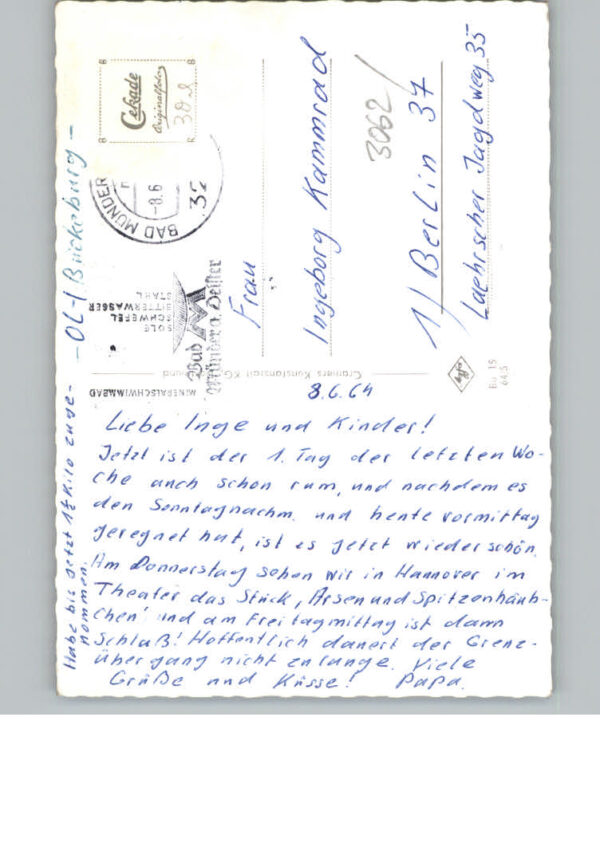 8.6.64
Liebe Inge und Kinder!
Jetzt ist der 1. Tag der letzten Wo-
che auch schon rum, und nachdem es
den Sonntagnachm. und heute vormittag
geregnet hat, ist es jetzt wieder schön.
Am Donnerstag sehen wir in Hannover im
Theater das Stück, Arsen und Spitzenhäub-
chen' und am Freitagmittag ist dann
Schluß! Hoffentlich dauert der Grenz-
übergang nicht zu lange. Viele
Grüße und Küsse! Papa.
Habe bis jetzt 1½ Kilo zuge-
nommen.
- OL-1 Bückeburg -
Cekade
Originalfoto
BAD MÜNDER
-8.6
32
MINERALSCHWIMMBAD
SOLE
SCHWEFEL
BITTERWASSER
STAHL
Bad
Münder a. Deister
Cramers Kunstanstalt KG
Frau
Ingeborg Kammrad
1/ Berlin 37
Laehrscher Jagdweg 35
3062/
Agfa
Bü 15